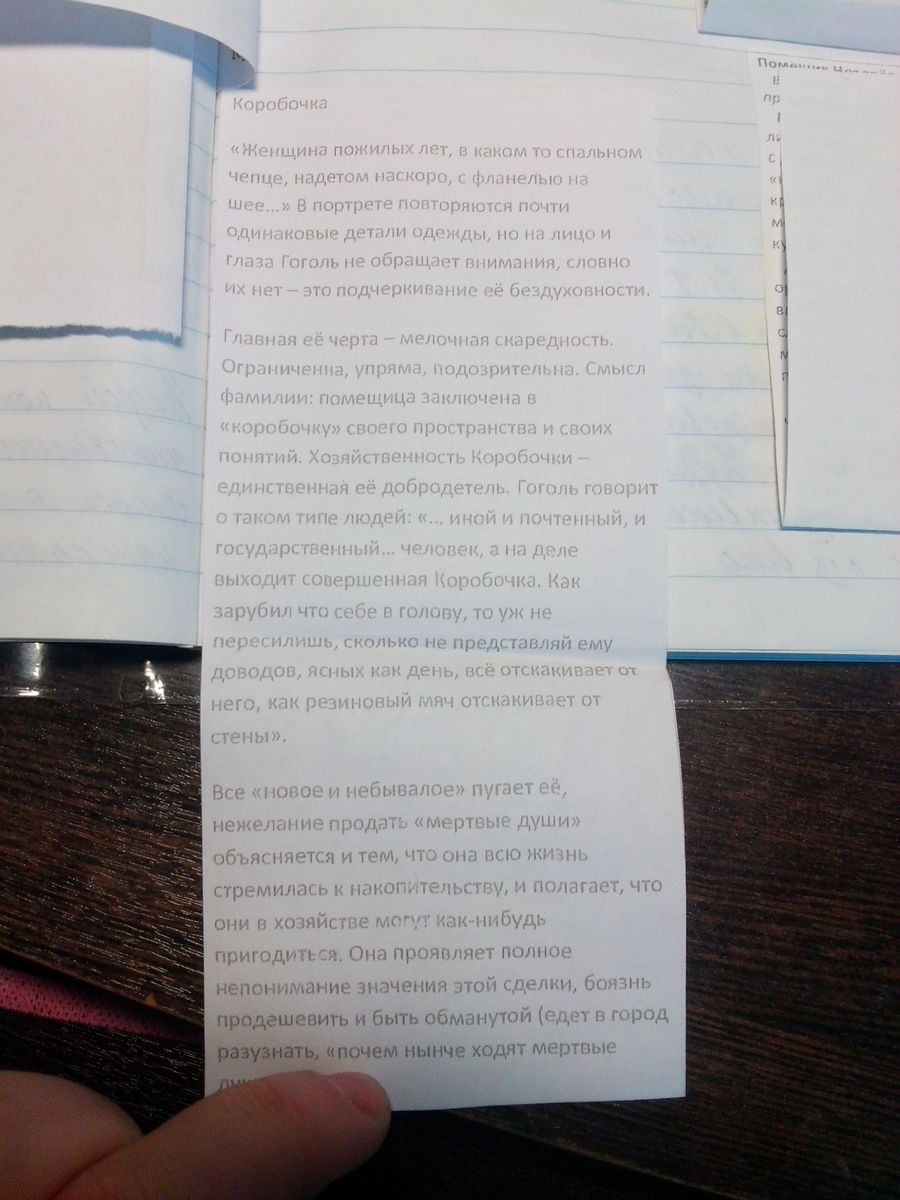 Коробочка
«Женщина пожилых лет, в каком то спальном
чепце, надетом наскоро, с фланелью на
шее...» В портрете повторяются почти
одинаковые детали одежды, но на лицо и
глаза Гоголь не обращает внимания, словно
их нет – это подчеркивание её бездуховности.
Главная её черта – мелочная скаредность.
Ограниченна, упряма, подозрительна. Смысл
фамилии: помещица заключена в
«коробочку» своего пространства и своих
понятий. Хозяйственность Коробочки –
единственная её добродетель. Гоголь говорит
о таком типе людей: «... иной и почтенный, и
государственный... человек, а на деле
выходит совершенная Коробочка. Как
зарубил что себе в голову, то уж не
пересилишь, сколько не представляй ему
доводов, ясных как день, всё отскакивает от
него, как резиновый мяч отскакивает от
стены».
Все «новое и небывалое» пугает её,
нежелание продать «мертвые души»
объясняется и тем, что она всю жизнь
стремилась к накопительству, и полагает, что
они в хозяйстве могут как-нибудь
пригодиться. Она проявляет полное
непонимание значения этой сделки, боязнь
продешевить и быть обманутой (едет в город
разузнать, «почем нынче ходят мертвые
Помещик